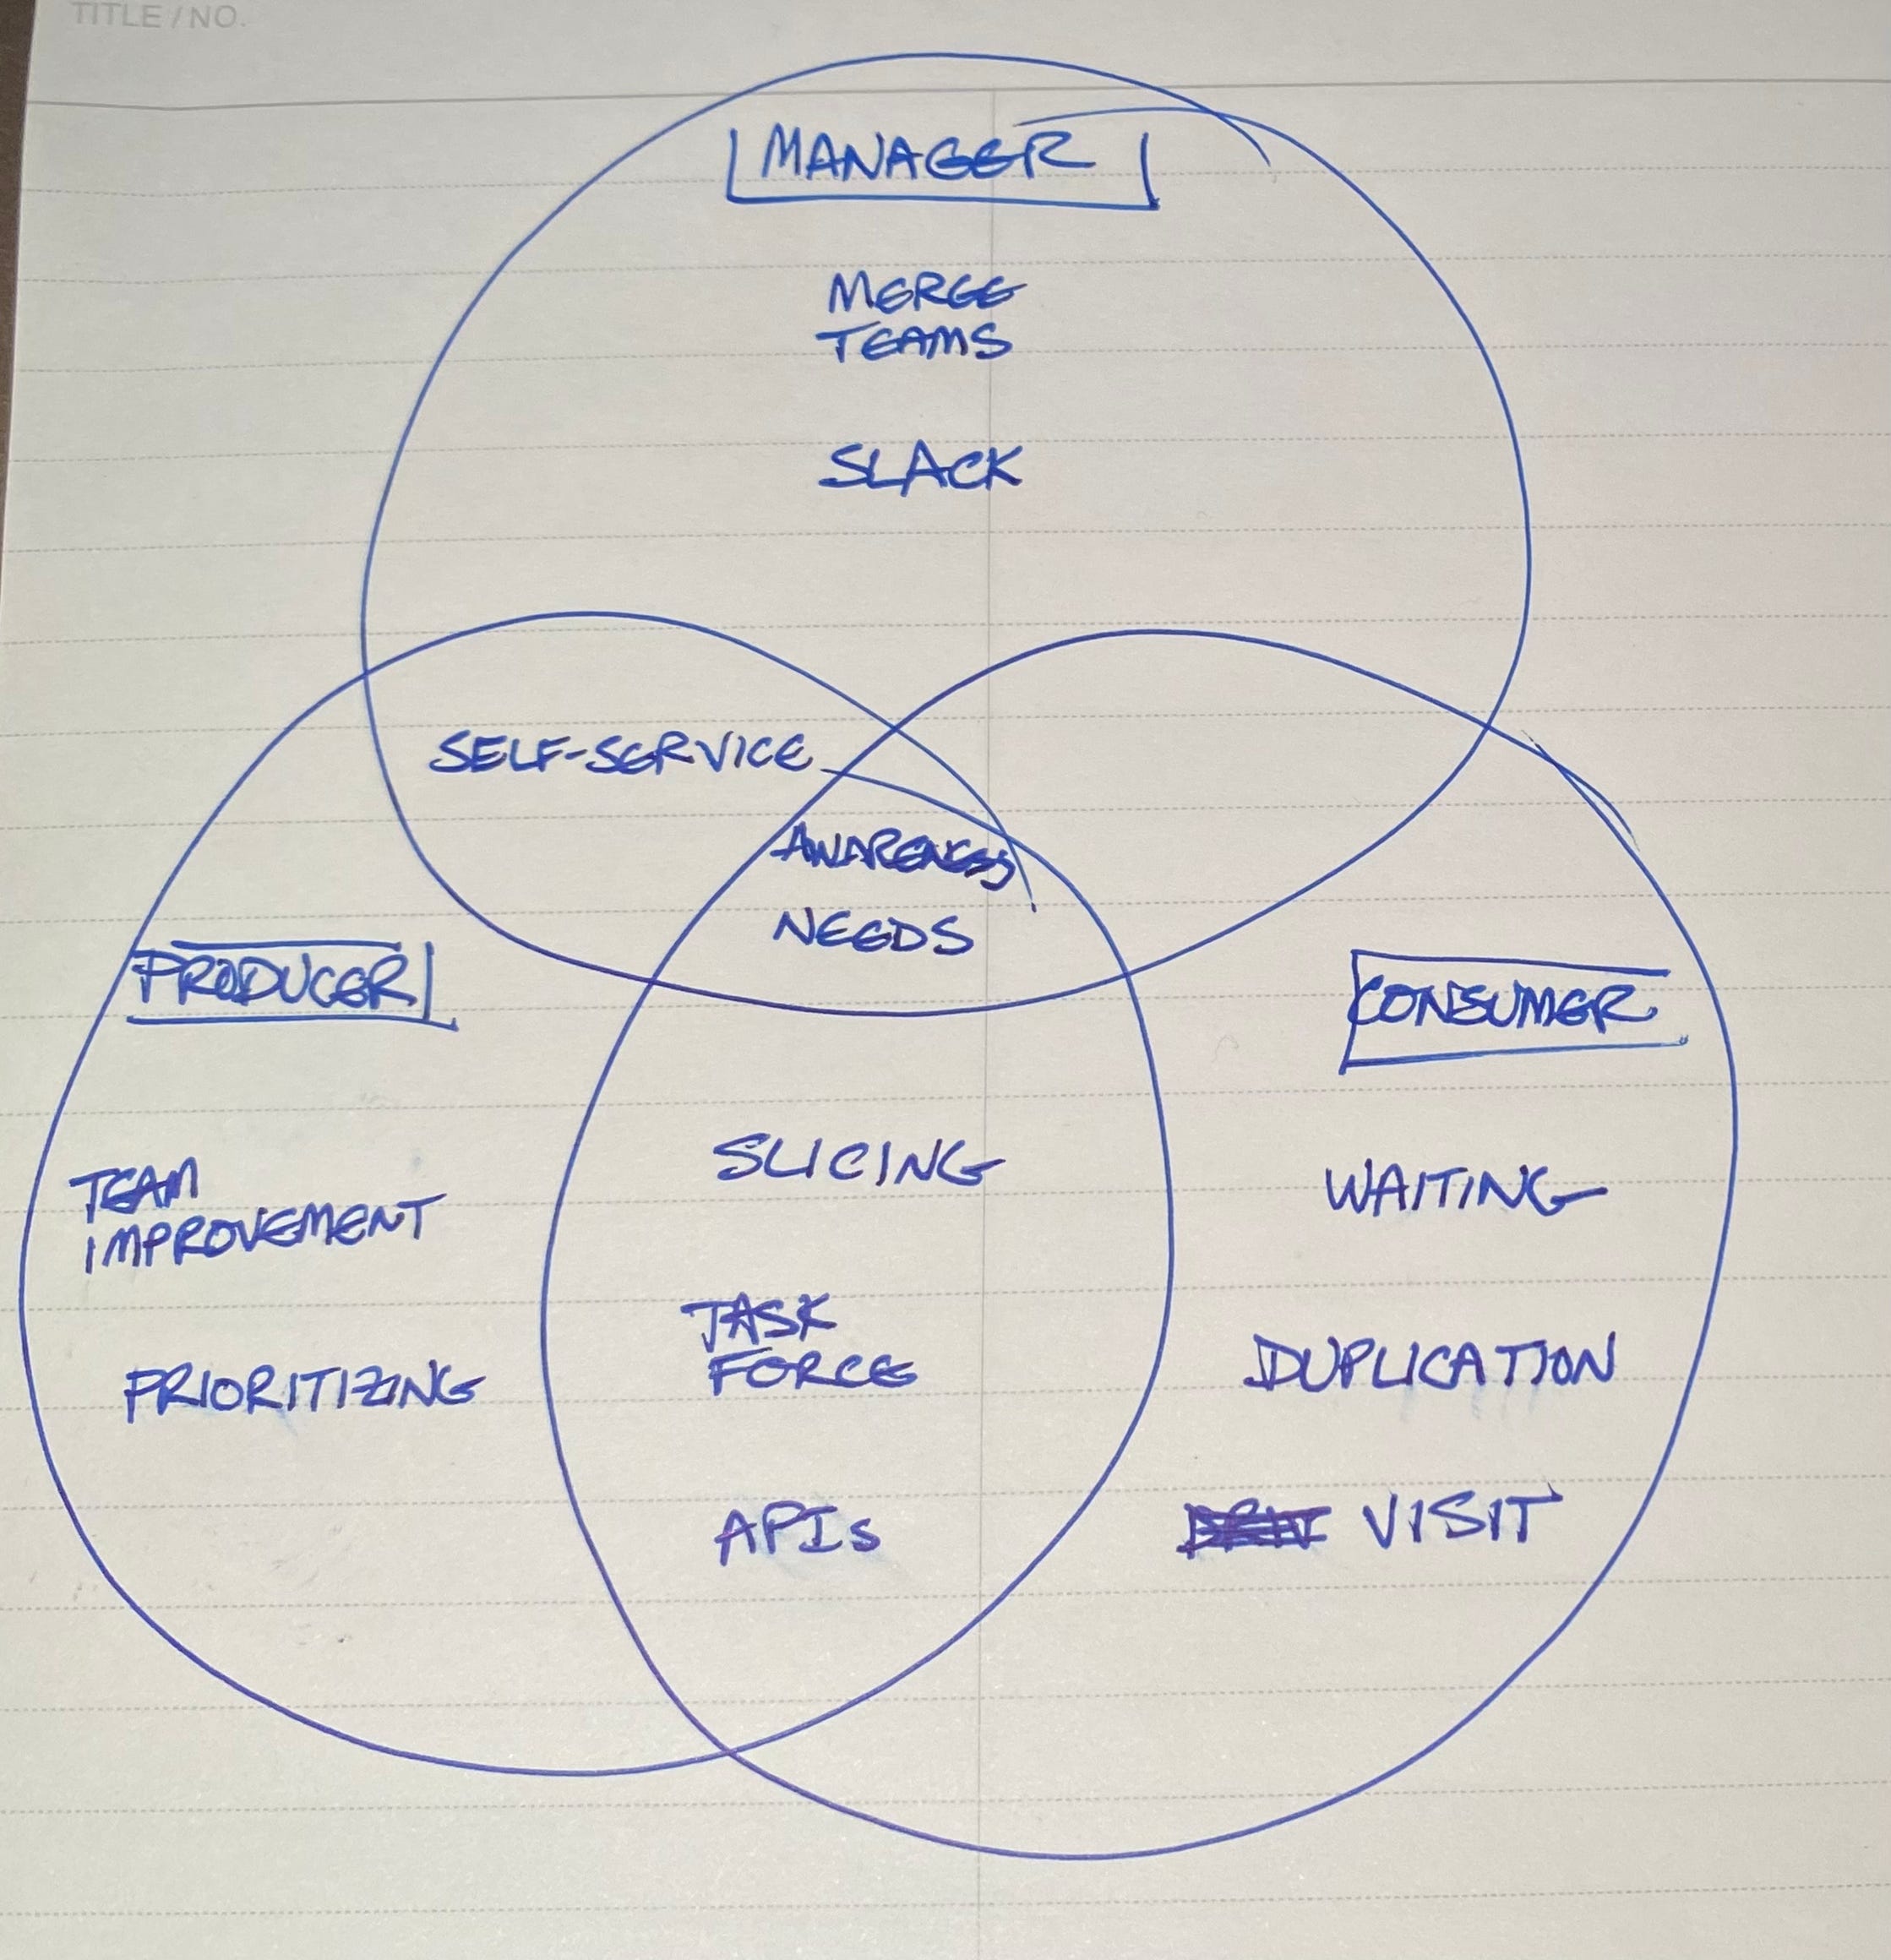 TITLE / NO.
MANAGER
MERGE
TEAMS
SLACK
SELF-SERVICE
AWARENESS
NEEDS
PRODUCER
CONSUMER
TEAM
IMPROVEMENT
PRIORITIZING
SLICING
TASK
FORCE
APIs
WAITING
DUPLICATION
VISIT